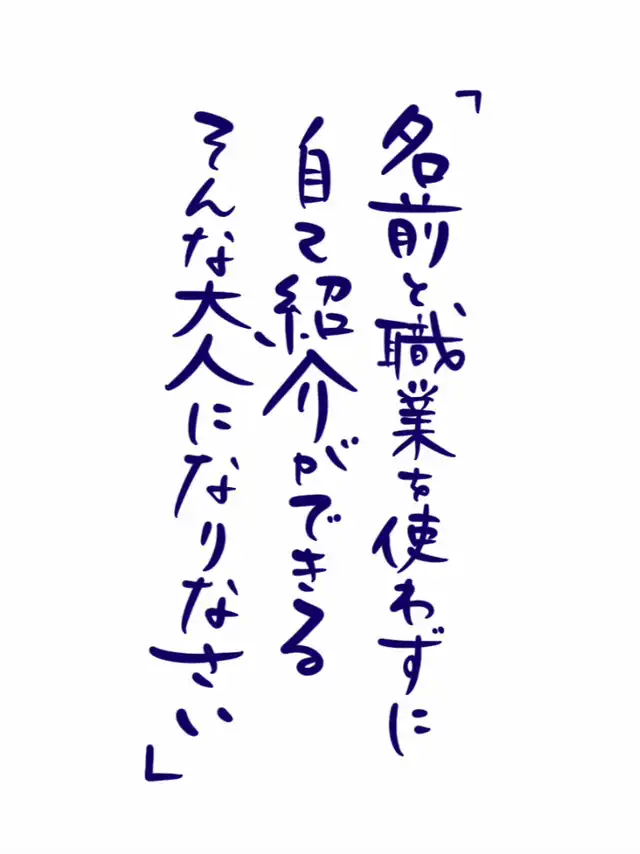 「名前と職業を使わずに
自己紹介ができる
そんな大人になりなさい」